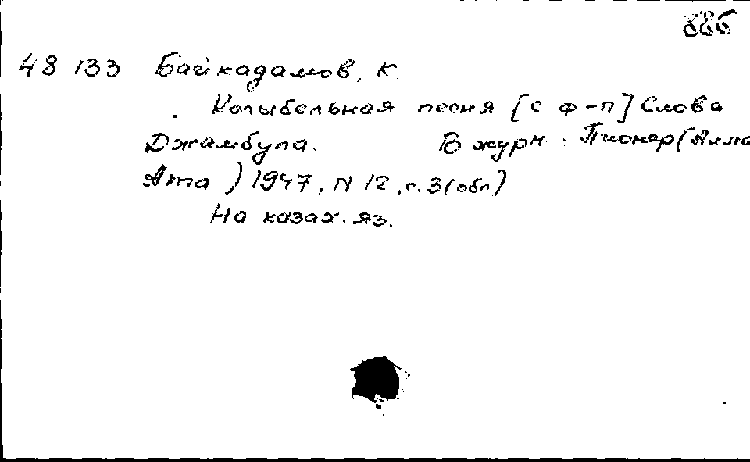 886
48 133 Байкадамов, К.
Колыбельная песня [с ф-п] Слова
Джамбула. В журн. Пионер (Алма
Ата) 1947, N 12, с. 3 (обл)
На казах. яз.